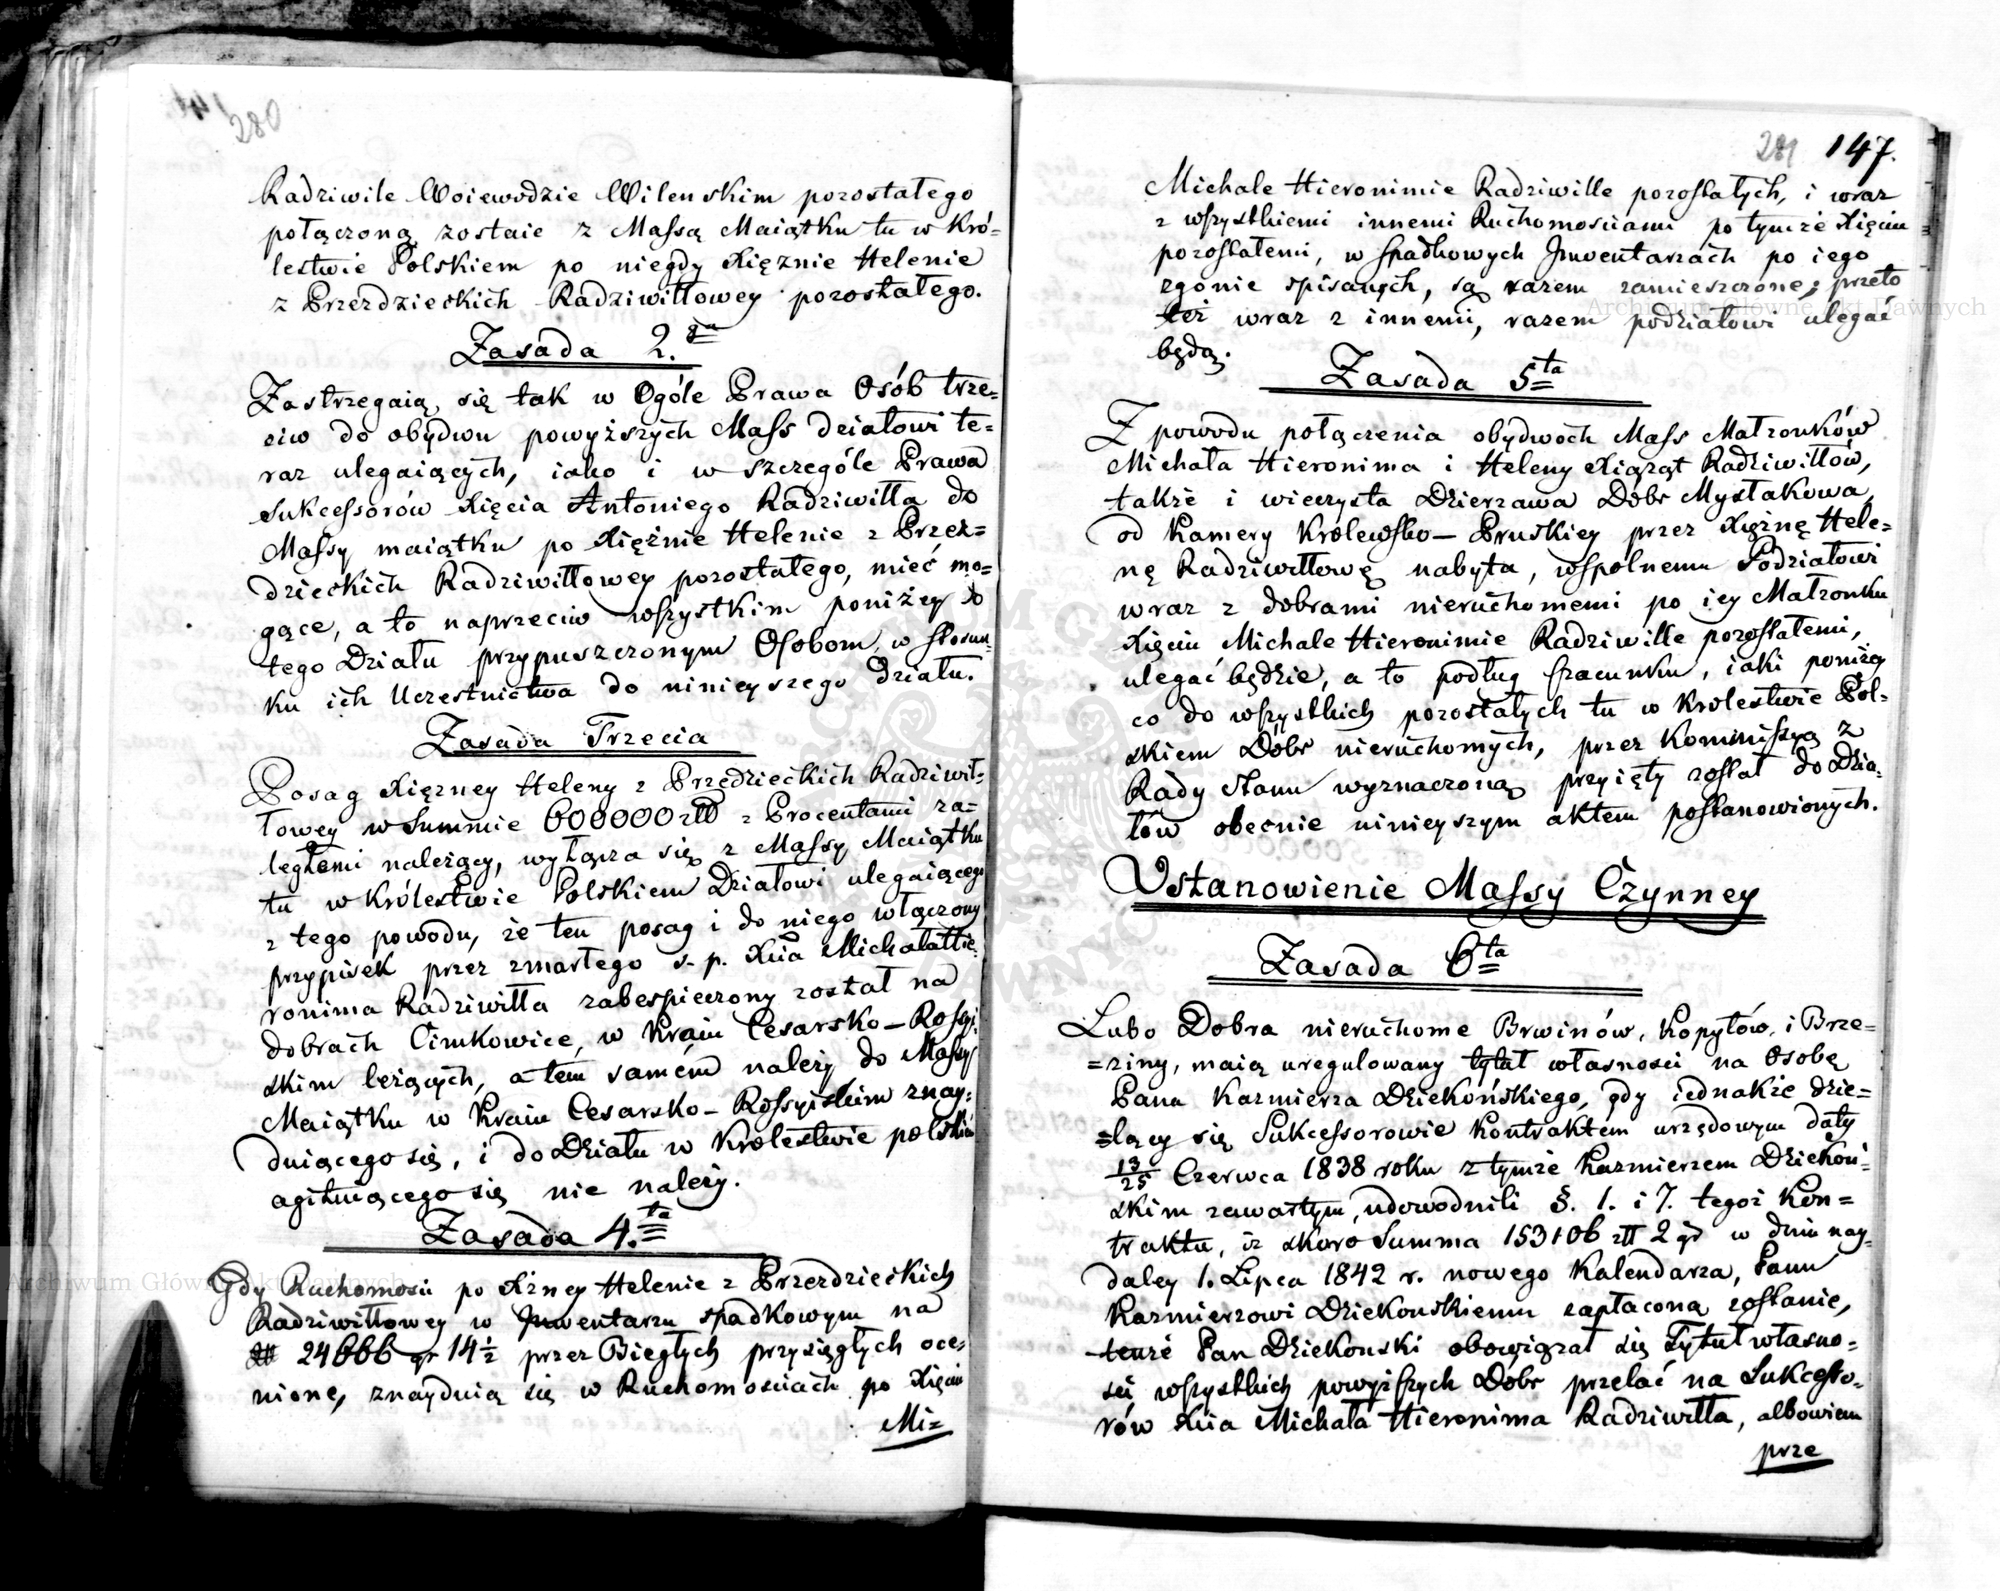 280
Radziwile Woiewodzie Wilenskim pozostałego
połączoną zostaie z Massą Maiątku tu w Kró=
lestwie Polskiem po niegdy Xiężnie Helenie
z Przezdzieckich Radziwiłłowey pozostałego.
Zasada 2.ga
Zastrzegaią się tak w Ogóle Prawa Osób trze=
ciw do obydwu powyższych Mass działowi te=
raz ulegaiących, iako i w szczególe Prawa
Sukcessorów Xięcia Antoniego Radziwiłła do
Massy maiątku po Xiężnie Helenie z Przez=
dzieckich Radziwiłłowey pozostałego, mieć mo=
gące, a to naprzeciw wszystkim poniżey do
tego Działu przypuszczonym Osobom, w stosun=
ku ich Uczestnictwa do ninieyszego Działu.
Zasada Trzecia
Posag Xiężney Heleny z Przedzieckich Radziwił=
łowey w Summie 600000 złł z Procentami za=
ległemi należący, wyłącza się z Massy Maiątku
tu w Królestwie Polskiem Działowi ulegaiącego
z tego powodu, że ten posag i do niego włączony
przypisek przez zmarłego s. p. Xcia Michała Hie=
ronima Radziwiłła zabespieczony został na
dobrach Cimkowice, w Kraiu Cesarsko-Rossyi=
skim leżących, a tem samém należy do Massy
Maiątku w Kraiu Cesarsko-Rossyiskim znay=
duiącego się, i do Działu w Królestwie polskim
agituiącego się nie należy.
Zasada 4.ta
Gdy Ruchomości po Xżney Helenie z Przezdzieckich
Radziwiłłowey w Inwentarzu spadkowym na
złł 24666 gr 14½ przez Biegłych przysięgłych oce=
nione, znayduią się w Ruchomościach po Xięciu
Mi=
281 147.
Michale Hieronimie Radziwille pozostałych, i wraz
z wszystkiemi innemi Ruchomościami po tymże Xięciu
pozostałemi, w spadkowych Inwentarzach po iego
zgonie spisanych, są razem zamieszczone, przeto
też wraz z innemi, razem podziałowi ulegać
będą.
Zasada 5ta
Z powodu połączenia obydwoch Mass Małzonków
Michała Hieronima i Heleny Xiążąt Radziwiłłów,
także i wieczysta Dzierzawa Dóbr Mystakowa,
od Kamery Królewsko-Pruskiey przez Xiężnę Hele=
nę Radziwiłłowę nabyta, wspolnemu Podziałowi
wraz z dobrami nieruchomemi po iey Małzonku
Xięciu Michale Hieronimie Radziwille pozostałemi,
ulegać będzie, a to podług szacunku, iaki poniżey
co do wszystkich pozostałych tu w Krolestwie Pol=
skiem Dóbr nieruchomych, przez Kommissyą z
Rady Stanu wyznaczoną przyięty został do Dzia=
łów obecnie ninieyszym aktem postanowionych.
Ustanowienie Massy Czynney
Zasada 6ta
Lubo Dobra nieruchome Brwinów, Kopytów, i Brze=
=ziny, maią uregulowany tytuł własności na Osobę
Pana Kazmierza Dziekońskiego, gdy iednakże dzie=
=lący się Sukcessorowie Kontraktem urzędowym daty
13/25 Czerwca 1838 roku z tymże Kazmierzem Dziekoń=
skim zawartym, udowodnili §. 1. i 7. tegoż Kon=
traktu, iż skoro Summa 153106 złł 2 gr w dniu nay=
daley 1. Lipca 1842 r. nowego Kalendarza, Panu
Kazmierzowi Dziekonskiemu zapłaconą zostanie,
tenże Pan Dziekonski obowiązał się Tytuł własno=
ści wszystkich powyższych Dóbr przelać na Sukcesso=
rów Xcia Michała Hieronima Radziwiłła, albowiem
prze
Archiwum Główne Akt Dawnych
Archiwum Główne Akt Dawnych